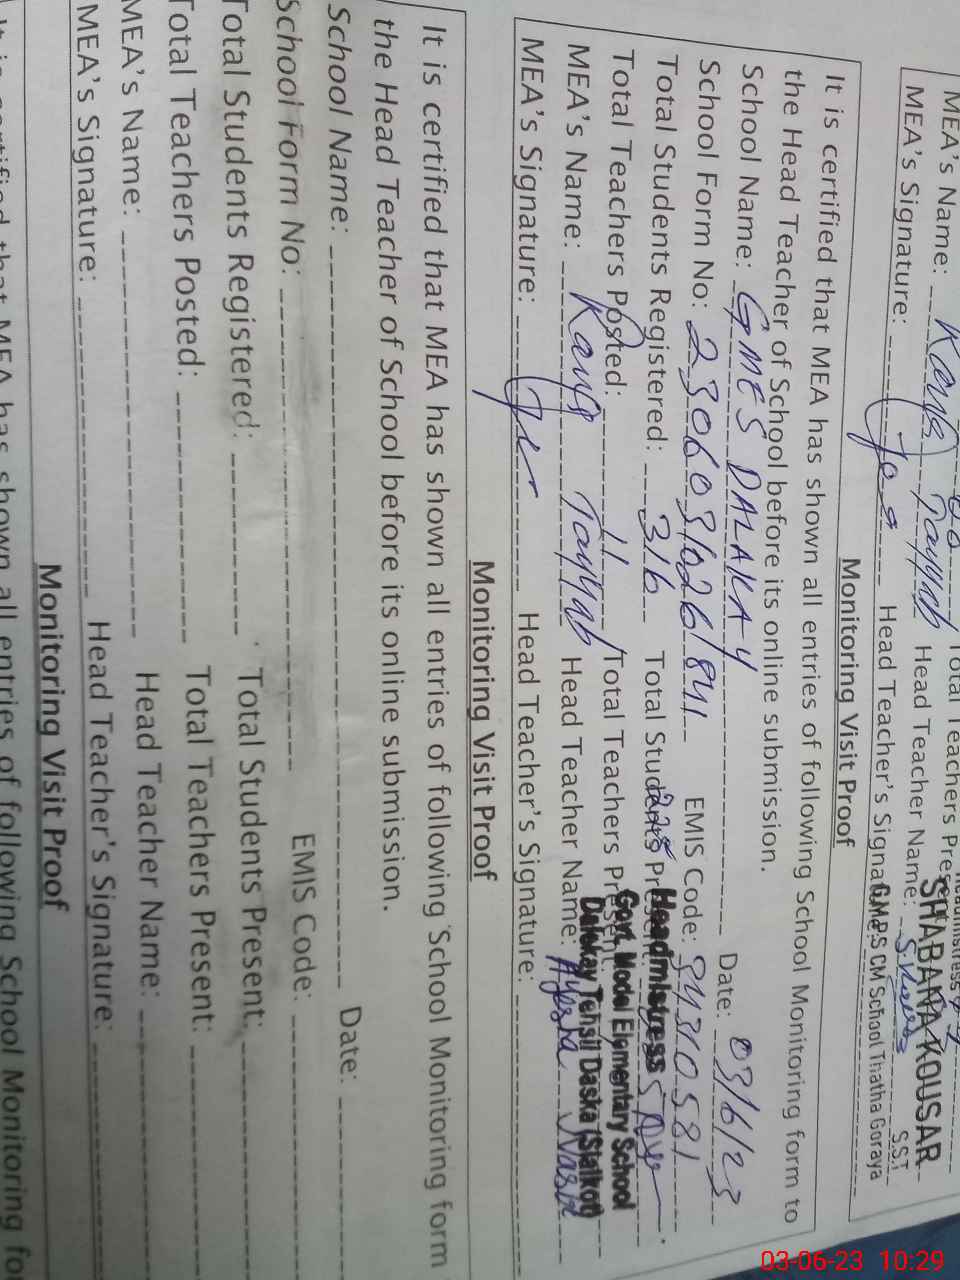 MEA's Name: Tayyab Head Teacher Name:
MEA's Signature: Head Teacher's Signature:
SHABANA KOUSAR
S.S.T
G.M.P.S CM School Thatha Goraya
Monitoring Visit Proof
It is certified that MEA has shown all entries of following School Monitoring form to
the Head Teacher of School before its online submission.
School Name: GMES DALAKAY Date: 03/6/23
School Form No: EMIS Code: 34310581
Total Students Registered: 316 Total Students Present:
Total Teachers Posted: 11 Total Teachers Present:
MEA's Name: Tayyab Head Teacher Name: Ayesha
MEA's Signature: Head Teacher's Signature:
Headmistress
Govt. Model Elementary School
Dalekay Tehsil Daska (Sialkot)
Monitoring Visit Proof
It is certified that MEA has shown all entries of following School Monitoring form
the Head Teacher of School before its online submission.
School Name: Date:
School Form No: EMIS Code:
Total Students Registered: Total Students Present:
Total Teachers Posted: Total Teachers Present:
MEA's Name: Head Teacher Name:
MEA's Signature: Head Teacher's Signature:
Monitoring Visit Proof
It is certified that MEA has shown all entries of following School Monitoring for
03-06-23 10:29